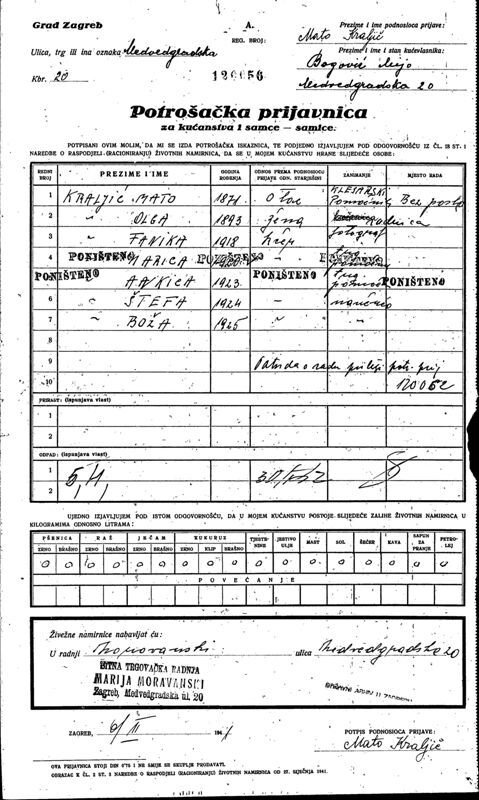 Grad Zagreb
Ulica, trg ili ina oznaka Medvedgradska
Kbr. 20
A.
REG. BROJ:
120056
Prezime i ime podnosioca prijave:
Mato Kraljić
Prezime i ime i stan kućevlasnika:
Bogović Mijo
Medvedgradska 20
Potrošačka prijavnica
za kućanstva i samce — samice.
POTPISANI OVIM MOLIM, DA MI SE IZDA POTROŠAČKA ISKAZNICA, TE PODJEDNO IZJAVLJUJEM POD ODGOVORNOŠĆU IZ ČL. 18 ST. 1
NAREDBE O RASPODJELI (RACIONIRANJU) ŽIVOTNIH NAMIRNICA, DA SE U MOJEM KUĆANSTVU HRANE SLIJEDEĆE OSOBE:
REDNI BROJ PREZIME I IME GODINA ROĐENJA ODNOS PREMA PODNOSIOCU PRIJAVE ODN. STARJEŠINI ZANIMANJE MJESTO RADA
1 KRALJIĆ MATO 1871 Otac KLESARSKI Pomoćnik Bez posla
2 " OLGA 1893 žena Radnica
3 " FANIKA 1918 kćer fotograf
4 PONIŠTENO MARICA PONIŠTENO PONIŠTENO
5 PONIŠTENO ANKICA 1923 PONIŠTENO PONIŠTENO
6 " ŠTEFA 1924 "
7 " BOŽA 1925 " "
8
9 Potvrda o radu
10
PRIRAST: (Ispunjava vlast)
1
2
OTPAD: (Ispunjava vlast)
1
2
UJEDNO IZJAVLJUJEM POD ISTOM ODGOVORNOŠĆU, DA U MOJEM KUĆANSTVU POSTOJE SLIJEDEĆE ZALIHE ŽIVOTNIH NAMIRNICA U
KILOGRAMIMA ODNOSNO LITRAMA:
PŠENICA RAŽ JEČAM KUKURUZ TJESTENINE JESTIVO ULJE MAST SOL ŠEĆER KAVA SAPUN ZA PRANJE PETROLEJ
ZRNO BRAŠNO ZRNO BRAŠNO ZRNO BRAŠNO ZRNO KLIP BRAŠNO
0 0 0 0 0 0 0 0 0 0 0 0 0 0 0 0 0
POVEĆANJE
Živežne namirnice nabavljat ću:
U radnji Moravanski ulica Medvedgradska 20
SITNA TRGOVAČKA RADNJA
MARIJA MORAVANSKI
Zagreb, Medvedgradska ul. 20
ZAGREB, 6/II 1941
POTPIS PODNOSIOCA PRIJAVE:
Mato Kraljić
OVA PRIJAVNICA STOJI DIN 0'75 I NE SMIJE SE SKUPLJE PRODAVATI.
OBRAZAC K ČL. 2 ST. 3 NAREDBE O RASPODJELI (RACIONIRANJU) ŽIVOTNIH NAMIRNICA OD 27. SIJEČNJA 1941.